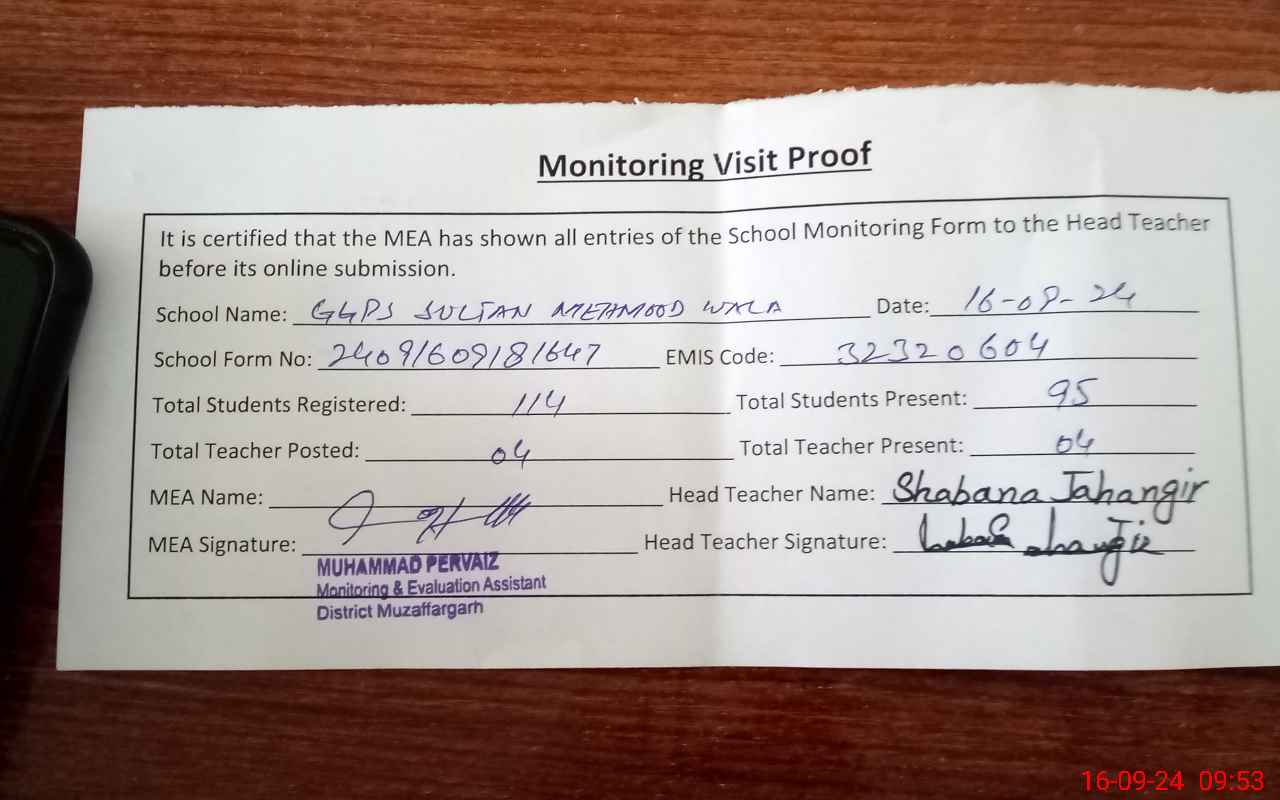 Monitoring Visit Proof
It is certified that the MEA has shown all entries of the School Monitoring Form to the Head Teacher
before its online submission.
School Name: GGPS SULTAN MEHMOOD WALA Date: 16-09-24
School Form No: 2409/609/8/647 EMIS Code: 32320604
Total Students Registered: 114 Total Students Present: 95
Total Teacher Posted: 04 Total Teacher Present: 04
MEA Name: Head Teacher Name: Shabana Jahangir
MEA Signature: Head Teacher Signature:
MUHAMMAD PERVAIZ
Monitoring & Evaluation Assistant
District Muzaffargarh
16-09-24 09:53